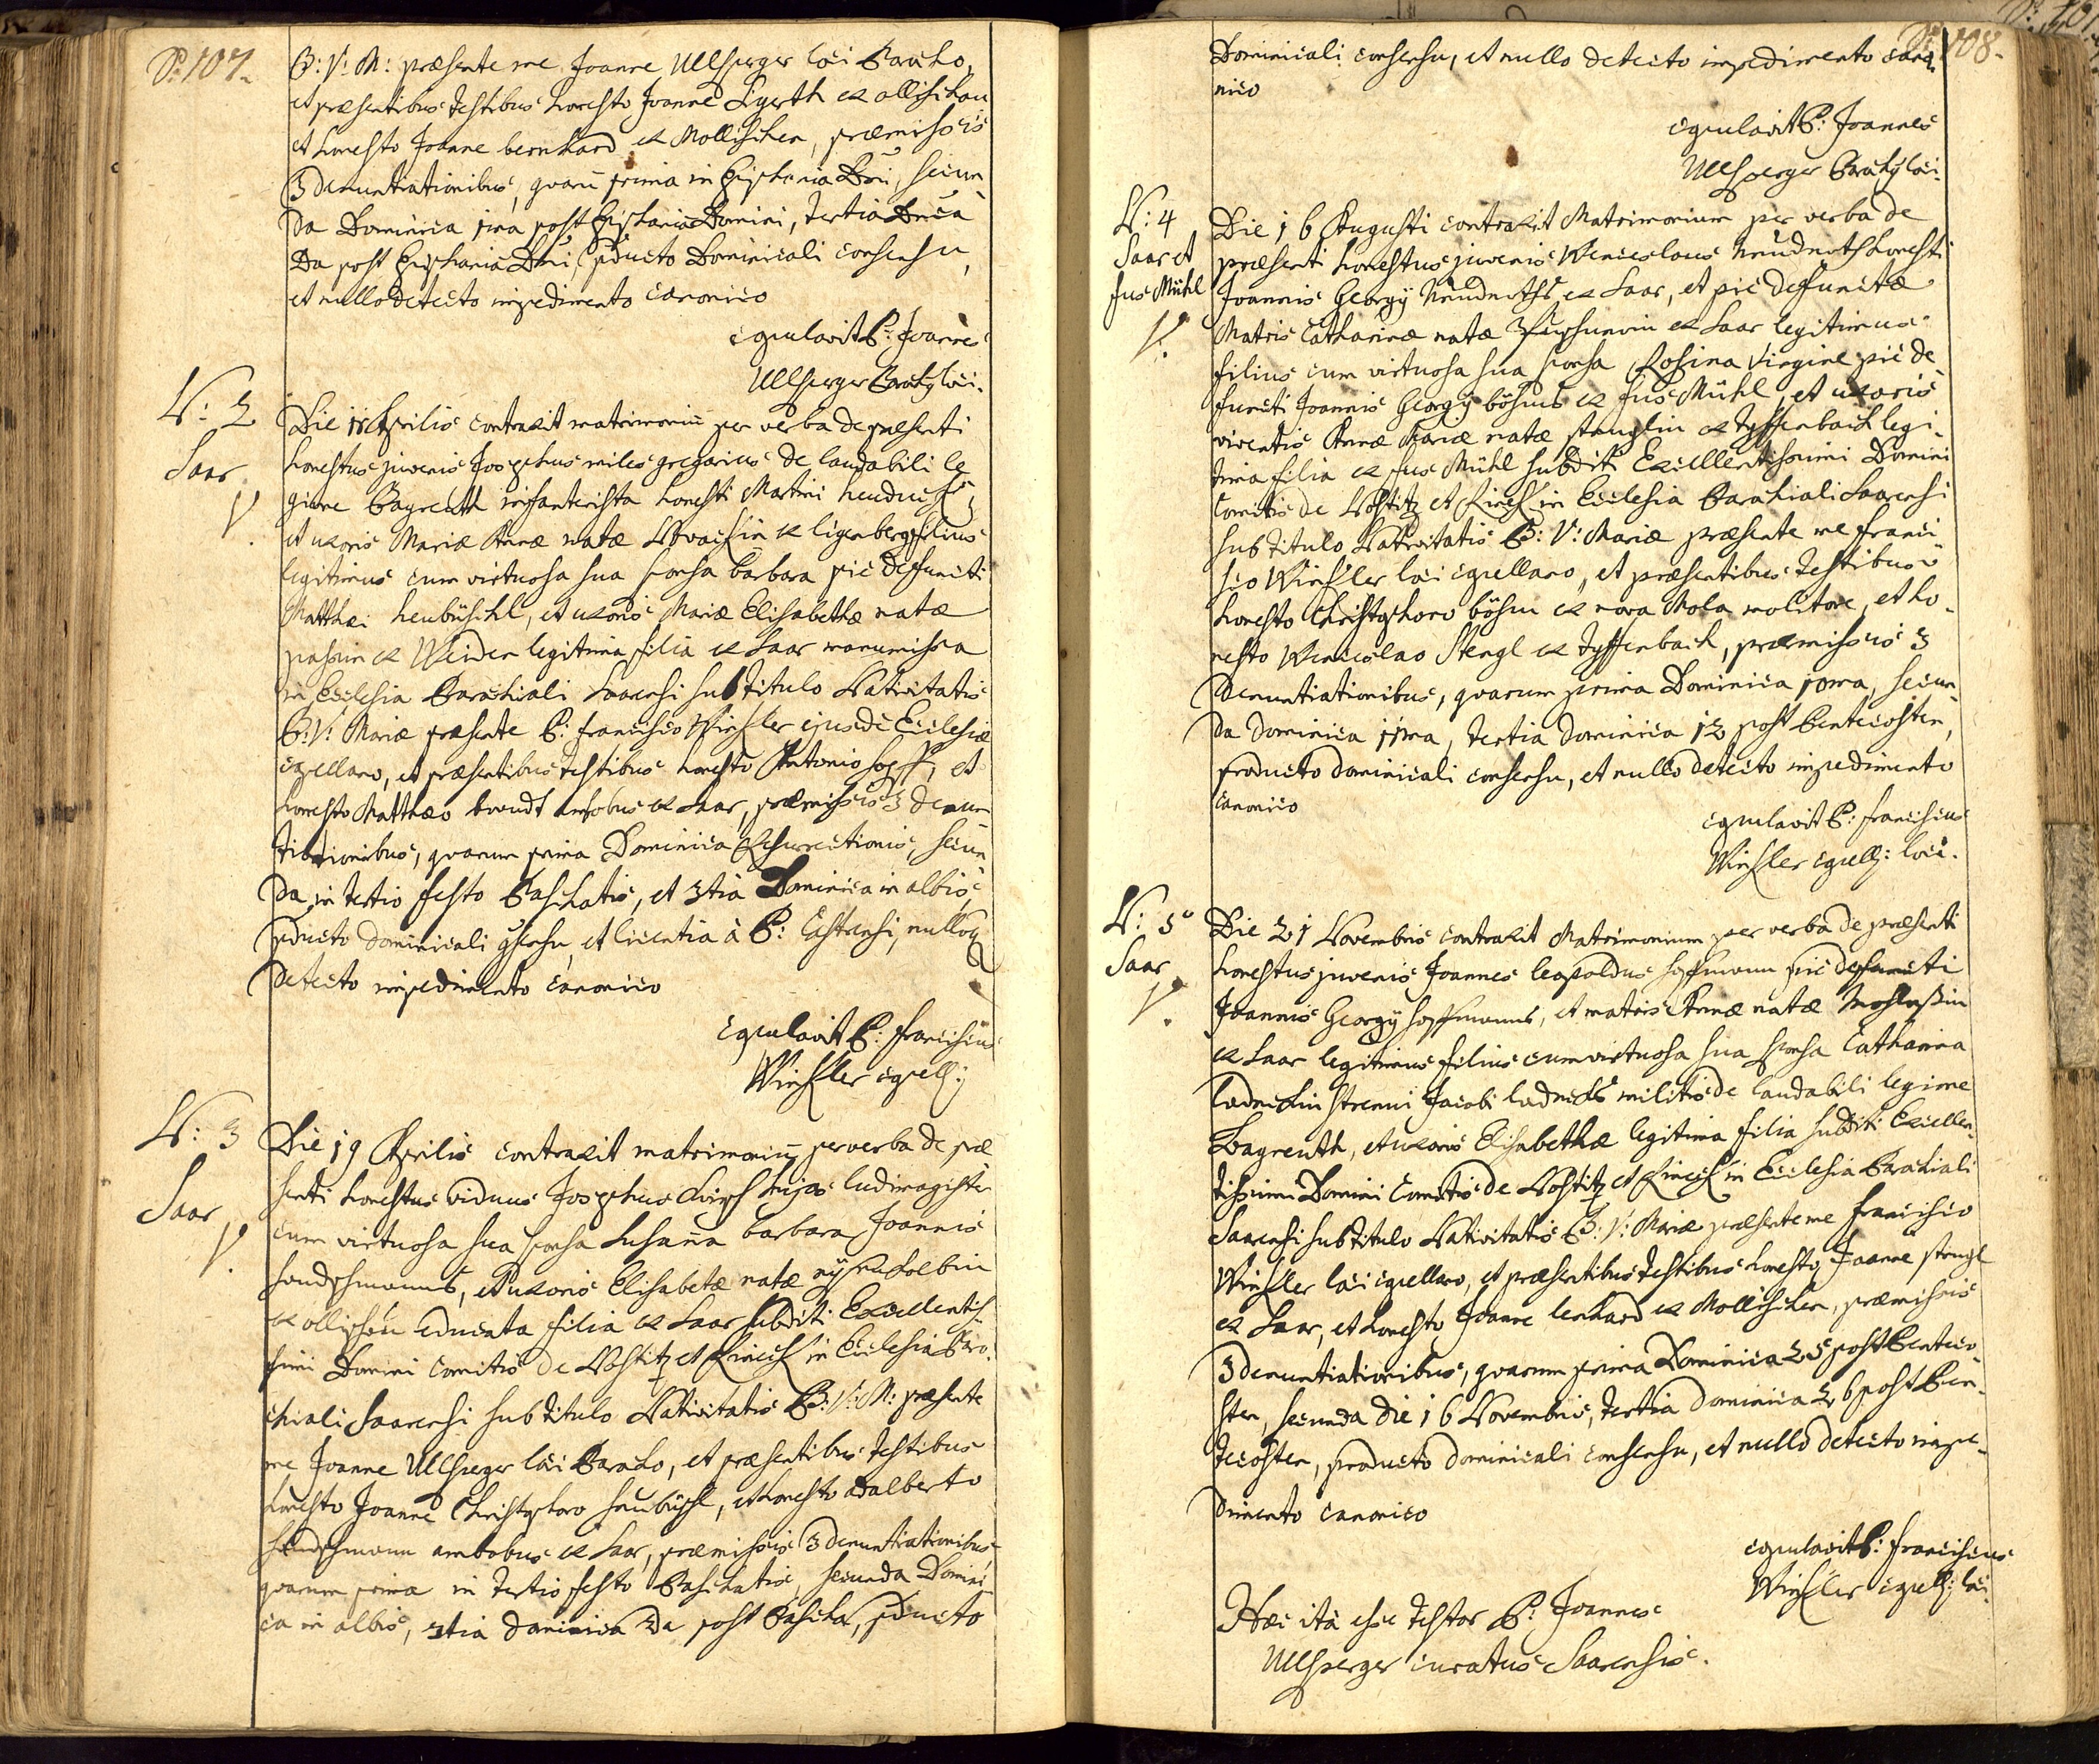 P: 107.
B: V: M: præsente me Joanne Ullsperger loci Parocho,
et præsentibus testibus honesto Joanne Ligerth ex ollischau
et honesto Joanne bernhard ex Mollischen, præmissis
3 denuntiationibus, quarū prima in Epiphania Dni, secun
da Dominica 1ma post Epiphaniā Domini, tertia Dnica
2da post Epiphaniā Dni, pducto Dominicali consensu,
et nullo detecto impedimento canonico
copulavit P: Joannes
Ullsperger Parochȝ loci.
N: 2
Saar
V.
Die 18 Aprilis contraxit matrimoniū per verba de præsenti
honestus juvenis Josephus miles gregarius de laudabili le
gione Bayreuth infanterista honesti Martini
et uxoris Mariæ Annæ natæ ex ligenberg filius
legitimus cum virtuosa sua sponsa barbara pie defuncti
Matthæi heubüschl, et uxoris Mariæ Elisabethæ natæ
ex Weiden legitima filia ex Saar manumissa
in Ecclesia Parochiali Saarensi sub titulo Nativitatis
B: V: Mariæ præsente P: francisco Winkler ejusdē Ecclesiæ
capellano, et præsentibus testibus honesto Antonio hopff, et
honesto Matthæo brandt ambobus ex Saar, præmissis 3 denun
tiationibus, quarum prima Dominica Resurrectionis, secun
da in tertio festo Paschatis, et 3tia Dominica in albis,
pducto dominicali gsensu, et licentia à P: Castrensi, nulloq
detecto impedimento canonico
copulavit P: franciscus
Winkler capell:
N: 3
Saar
V.
Die 19 Aprilis contraxit matrimoniū per verba de præ
senti honestus viduus Josephus hujas ludimagister
cum virtuosa sua sponsa Susanna barbara Joannis
handschmanns, et uxoris Elisabetæ natæ
ex ollischau educata filia ex Saar subditi Excellentis
simi Domini Comitis de Nostitz et Rineck in Ecclesia Paro
chiali Saarensi sub titulo Nativitatis B: V: M: præsente
me Joanne Ullsperger loci Parocho, et præsentibus testibus
honesto Joanne Christophoro heubüschl, et honesto adalberto
handschmann ambobus ex Saar, præmissis 3 denuntiationibus
quarum prima in tertio festo Paschatis, secunda Domini
ca in albis, 3tia dominica 2da post Pascha, pducto
P: 108.
Dominicali consensu, et nullo detecto impedimento cano
nico
copulavit P: Joannes
Ullsperger Parochȝ loci.
N: 4
Saar et
fus Mühl
V.
Die 16 Augusti contraxit Matrimonium per verba de
præsenti honestus juvenis Wenceslaus honesti
Joannis Georgÿ ex Saar, et pie defunctæ
Matris Catharinæ natæ ex Saar legitimus
filius cum virtuosa sua sponsa Rosina Virgine pie de
functi Joannis Georgÿ böhms ex fus Mühl, et uxoris
viventis Annæ Mariæ natæ stenglin ex tyffenbach legi
tima filia ex fus Mühl subditi Excellentissimi Domini
Comitis de Nostitz et Rineck in Ecclesia Parochiali Saarensi
sub titulo Nativitatis B: V: Mariæ præsente me franci
sco Winkler loci capellano, et præsentibus testibus
honesto Christophoro böhm ex nova Mola molitore, et ho
nesto Wenceslao Stengl ex tyffenbach, præmissis 3
Denuntiationibus, quarum prima Dominica 10ma, secun
da dominica 11ma, tertia dominica 12 post Pentecosten,
producto dominicali consensu, et nullo detecto impedimento
canonico
copulavit P: franciscus
Winkler capell: loci.
N: 5
Saar
V.
Die 21 Novembris contraxit Matrimonium per verba de præsenti
honestus juvenis Joannes leopoldus hoffmann pie defuncti
Joannis Georgÿ hoffmanns, et matris Annæ natæ
ex Saar legitimus filius cum virtuosa sua sponsa Catharina
strenui Jacobi militis de laudabili legione
Bayreuth, et uxoris Elisabethæ legitima filia subditi Excellen
tissimi Domini Comitis de Nostitz et Rineck in Ecclesia Parochiali
Saarensi sub titulo Nativitatis B: V: Mariæ præsente me francisco
Winkler loci capellano, et præsentibus testibus honesto Joanne stengl
ex Saar, et honesto Joanne lenhard ex Mollischen, præmissis
3 denuntiationibus, quarum prima Dominica 25 post Penteco
sten, secunda die 16 Novembris, tertia dominica 26 post Pen
tecosten, producto dominicali consensu, et nullo detecto impe
dimento canonico
copulavit P: franciscus
Winkler capell: loci
Hæc ità esse testor P: Joannes
Ullsperger curatus Saarensis.